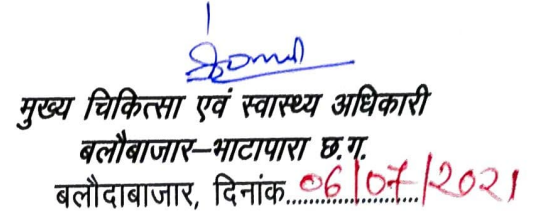 मुख्य चिकित्सा एवं स्वास्थ्य अधिकारी
बलौबाजार–भाटापारा छ.ग.
बलौदाबाजार, दिनांक......06/07/2021